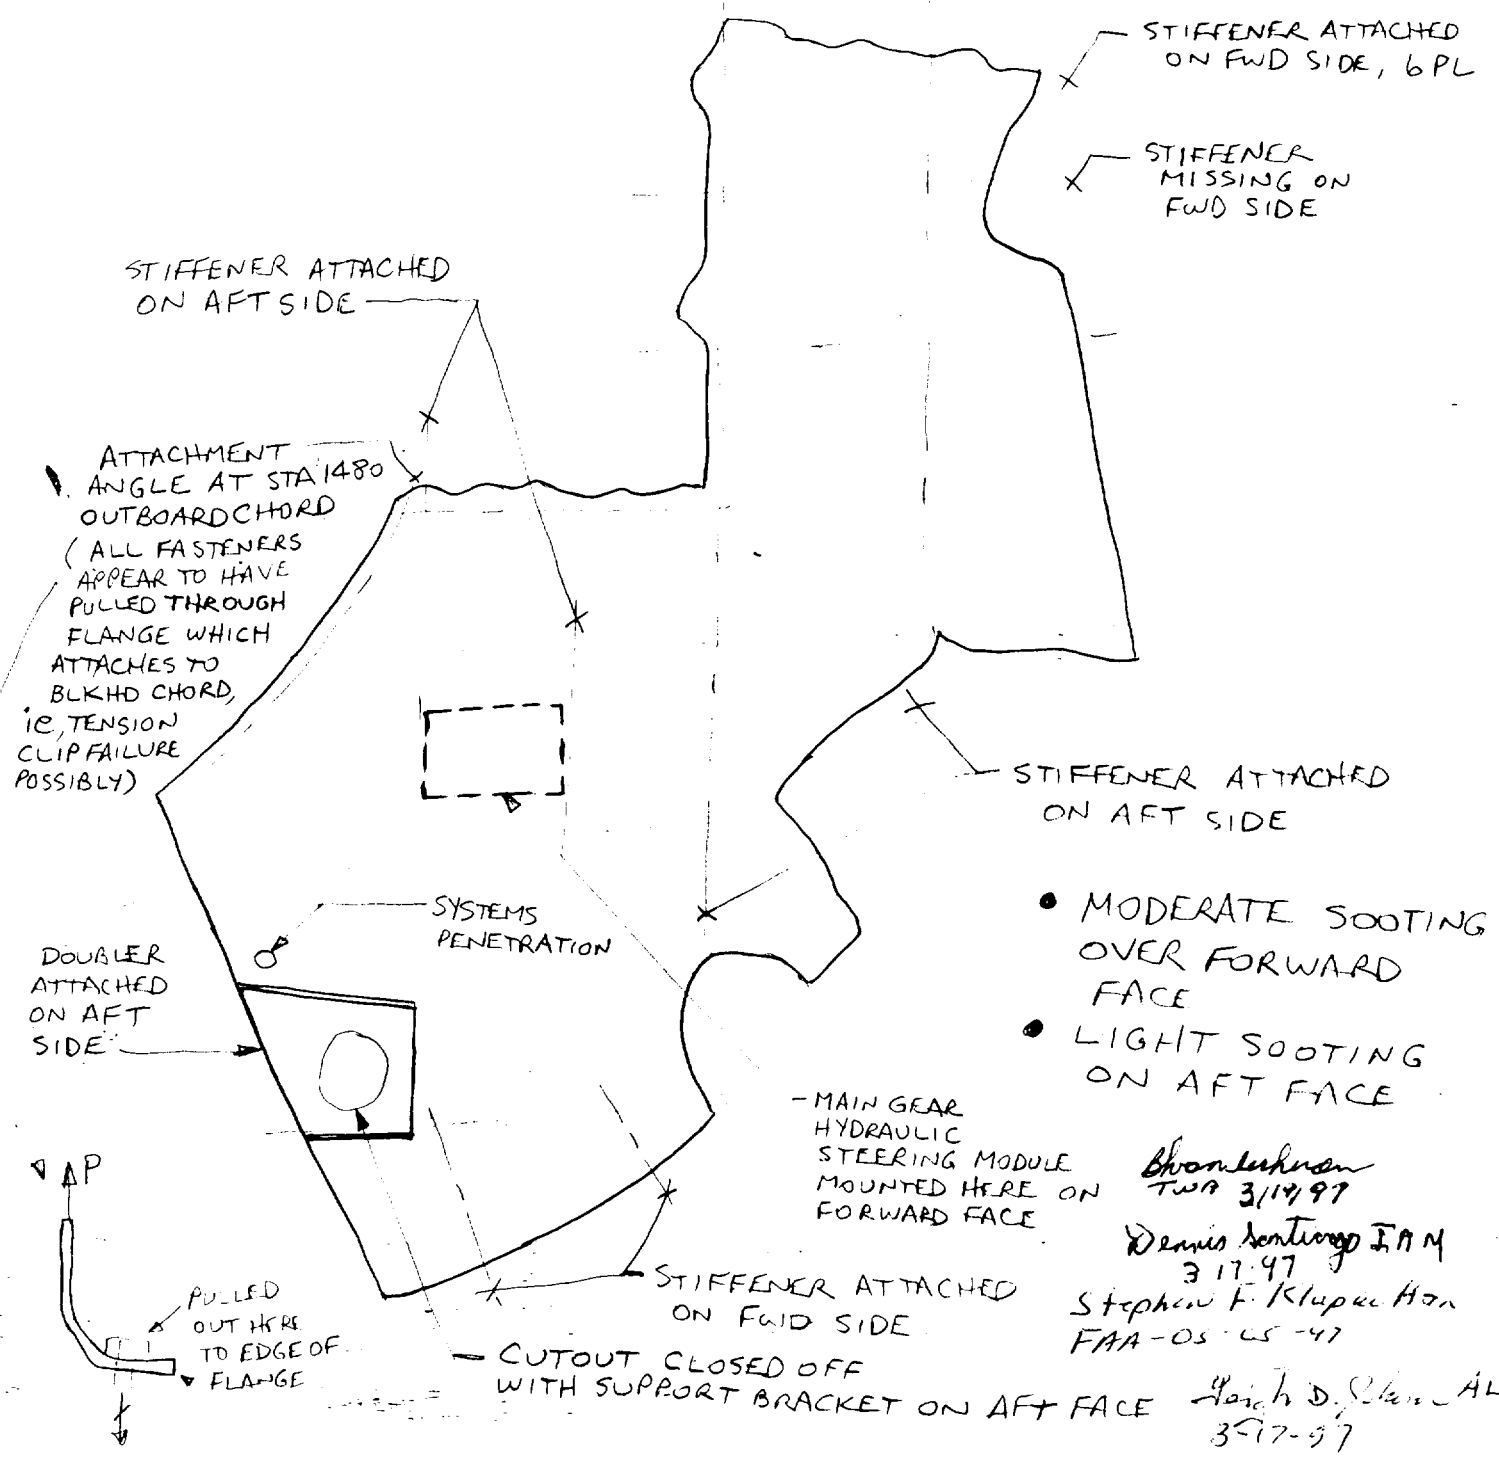 STIFFENER ATTACHED
ON FWD SIDE, 6 PL
STIFFENER
MISSING ON
FWD SIDE
STIFFENER ATTACHED
ON AFT SIDE
ATTACHMENT
ANGLE AT STA 1480
OUTBOARD CHORD
(ALL FASTENERS
APPEAR TO HAVE
PULLED THROUGH
FLANGE WHICH
ATTACHES TO
BLKHD CHORD,
ie, TENSION
CLIP FAILURE
POSSIBLY)
STIFFENER ATTACHED
ON AFT SIDE
SYSTEMS
PENETRATION
DOUBLER
ATTACHED
ON AFT
SIDE
• MODERATE SOOTING
OVER FORWARD
FACE
• LIGHT SOOTING
ON AFT FACE
- MAIN GEAR
HYDRAULIC
STEERING MODULE
MOUNTED HERE ON
FORWARD FACE
P
PULLED
OUT HERE
TO EDGE OF
FLANGE
STIFFENER ATTACHED
ON FWD SIDE
CUTOUT CLOSED OFF
WITH SUPPORT BRACKET ON AFT FACE
TWA
Dennis Santiago IAM
3 17 97
Stephen F.
FAA
D.
3-17-97